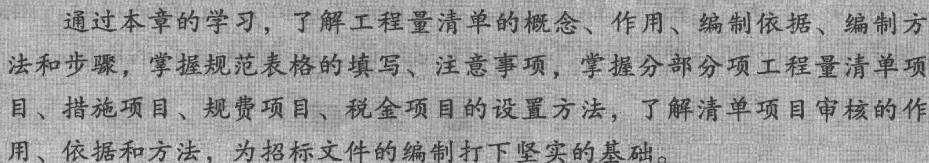 通过本章的学习，了解工程量清单的概念、作用、编制依据、编制方
法和步骤，掌握规范表格的填写、注意事项，掌握分部分项工程量清单项
目、措施项目、规费项目、税金项目的设置方法，了解清单项目审核的作
用、依据和方法，为招标文件的编制打下坚实的基础。